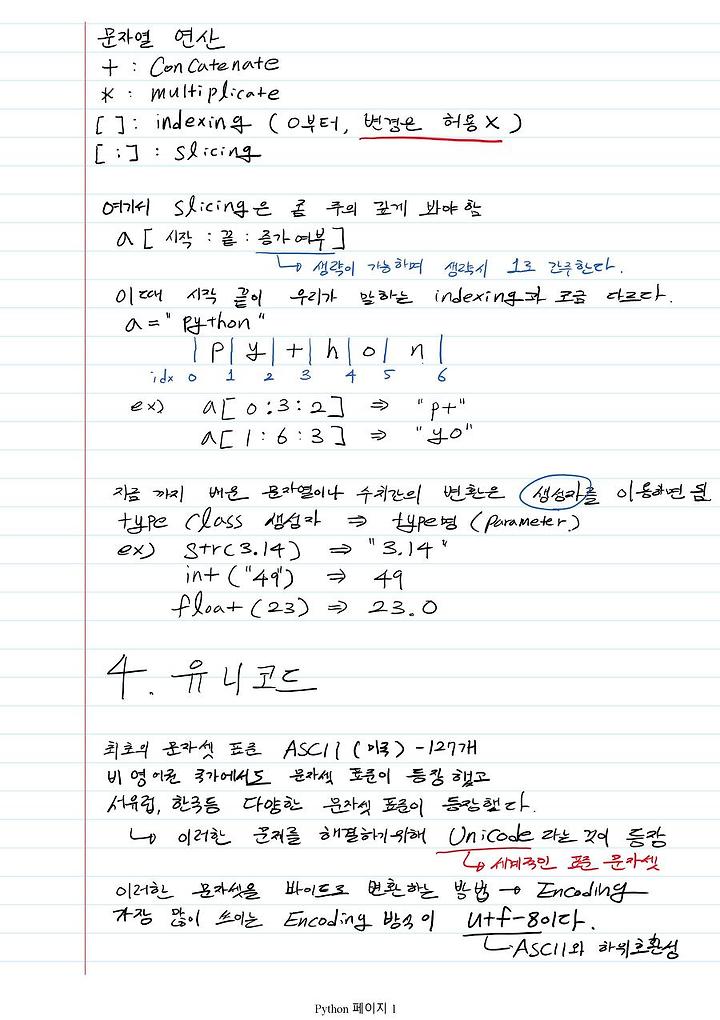 문자열 연산
+ : Concatenate
* : multiplicate
[ ] : indexing ( 0부터, 변경은 허용 X )
[ ; ] : slicing
여기서 slicing은 좀 주의 깊게 봐야 함
a [ 시작 : 끝 : 증가여부 ]
↳ 생략이 가능하며 생략시 1로 간주한다.
이때 시작 끝이 우리가 말하는 indexing과 조금 다르다.
a = " python "
| p | y | t | h | o | n |
idx 0 1 2 3 4 5 6
ex) a[ 0 : 3 : 2 ] ⇒ "pt"
a[ 1 : 6 : 3 ] ⇒ "yo"
지금 까지 배운 문자열이나 수치간의 변환은 생성자를 이용하면 됨
type class 생성자 ⇒ type명 (parameter)
ex) str(3.14) ⇒ "3.14"
int ("49") ⇒ 49
float (23) ⇒ 23.0
4. 유니코드
최초의 문자셋 표준 ASCII (미국) - 127개
비 영어권 국가에서도 문자셋 표준이 등장 했고
서유럽, 한국등 다양한 문자셋 표준이 등장했다.
↳ 이러한 문제를 해결하기위해 Unicode 라는 것이 등장
↳ 세계적인 표준 문자셋
이러한 문자셋을 바이트로 변환하는 방법 → Encoding
가장 많이 쓰이는 Encoding 방식이 utf-8이다.
ASCII와 하위호환성
Python 페이지 1